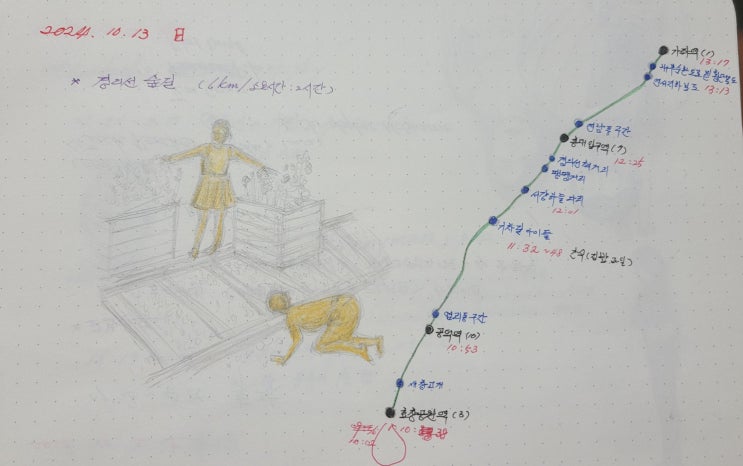 2024. 10. 13 日
* 경의선 숲길 (6km/소요시간:2시간)
가좌역 (1)
13:17
13:13
연남동 구간
홍대입구역 (7)
12:25
경의선책거리
땡땡거리
서강하늘다리
12:01
기찻길 아이들
11:32 ~ 48 간식 (김밥, 과일)
염리동 구간
공덕역 (10)
10:53
새창고개
효창공원역 (3)
10:02
10: